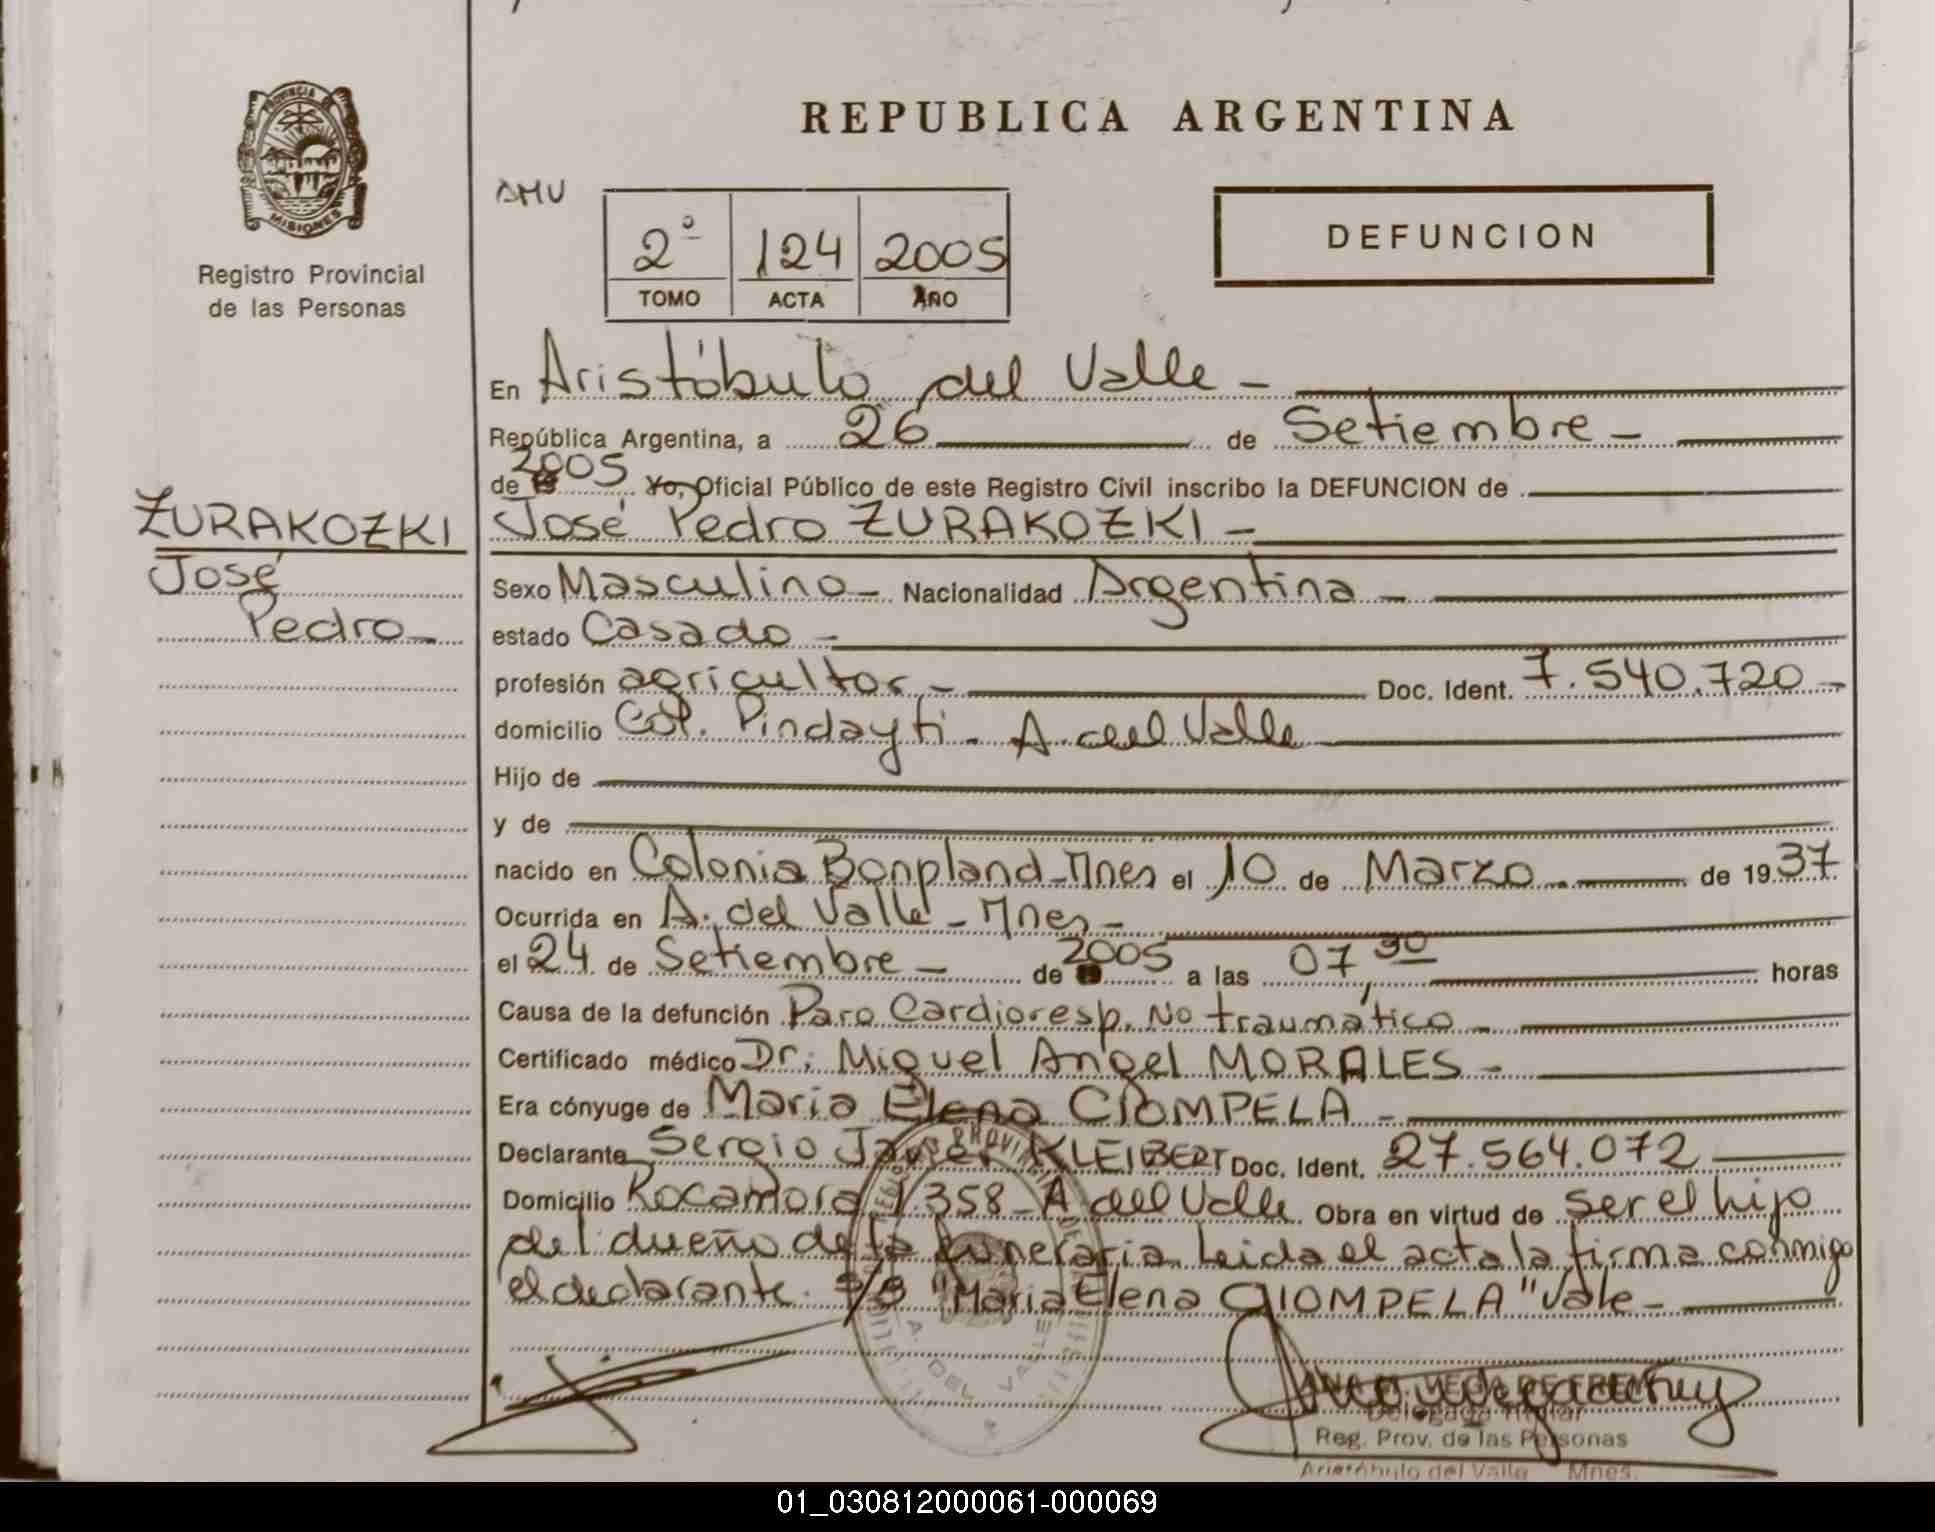 REPUBLICA ARGENTINA
PROVINCIA DE
MISIONES
Registro Provincial
de las Personas
DMU
2º 124 2005
TOMO ACTA AÑO
DEFUNCION
En Aristóbulo del Valle -
República Argentina, a 26 de Setiembre -
de 2005 Yo, Oficial Público de este Registro Civil inscribo la DEFUNCION de
ZURAKOZKI
José
Pedro -
José Pedro ZURAKOZKI -
Sexo Masculino - Nacionalidad Argentina -
estado Casado -
profesión agricultor - Doc. Ident. 7.540.720 -
domicilio Col. Pindayti - A. del Valle
Hijo de
y de
nacido en Colonia Bonpland - Mnes el 10 de Marzo de 1937
Ocurrida en A. del Valle - Mnes -
el 24 de Setiembre - de 2005 a las 07 30 horas
Causa de la defunción Paro Cardioresp. No traumático -
Certificado médico Dr: Miguel Angel MORALES -
Era cónyuge de Maria Elena CIOMPELA -
Declarante Sergio Javier KLEIBERT Doc. Ident. 27.564.072
Domicilio Rocamora 1358 - A del Valle Obra en virtud de ser el hijo
del dueño de la funeraria. Leida el acta la firma conmigo
el declarante. S/B "Maria Elena GIOMPELA" Vale -
A. DEL VALLE
ANA M. VEGA DE FREM
Delegada Titular
Reg. Prov. de las Personas
Aristóbulo del Valle Mnes.
01_030812000061-000069